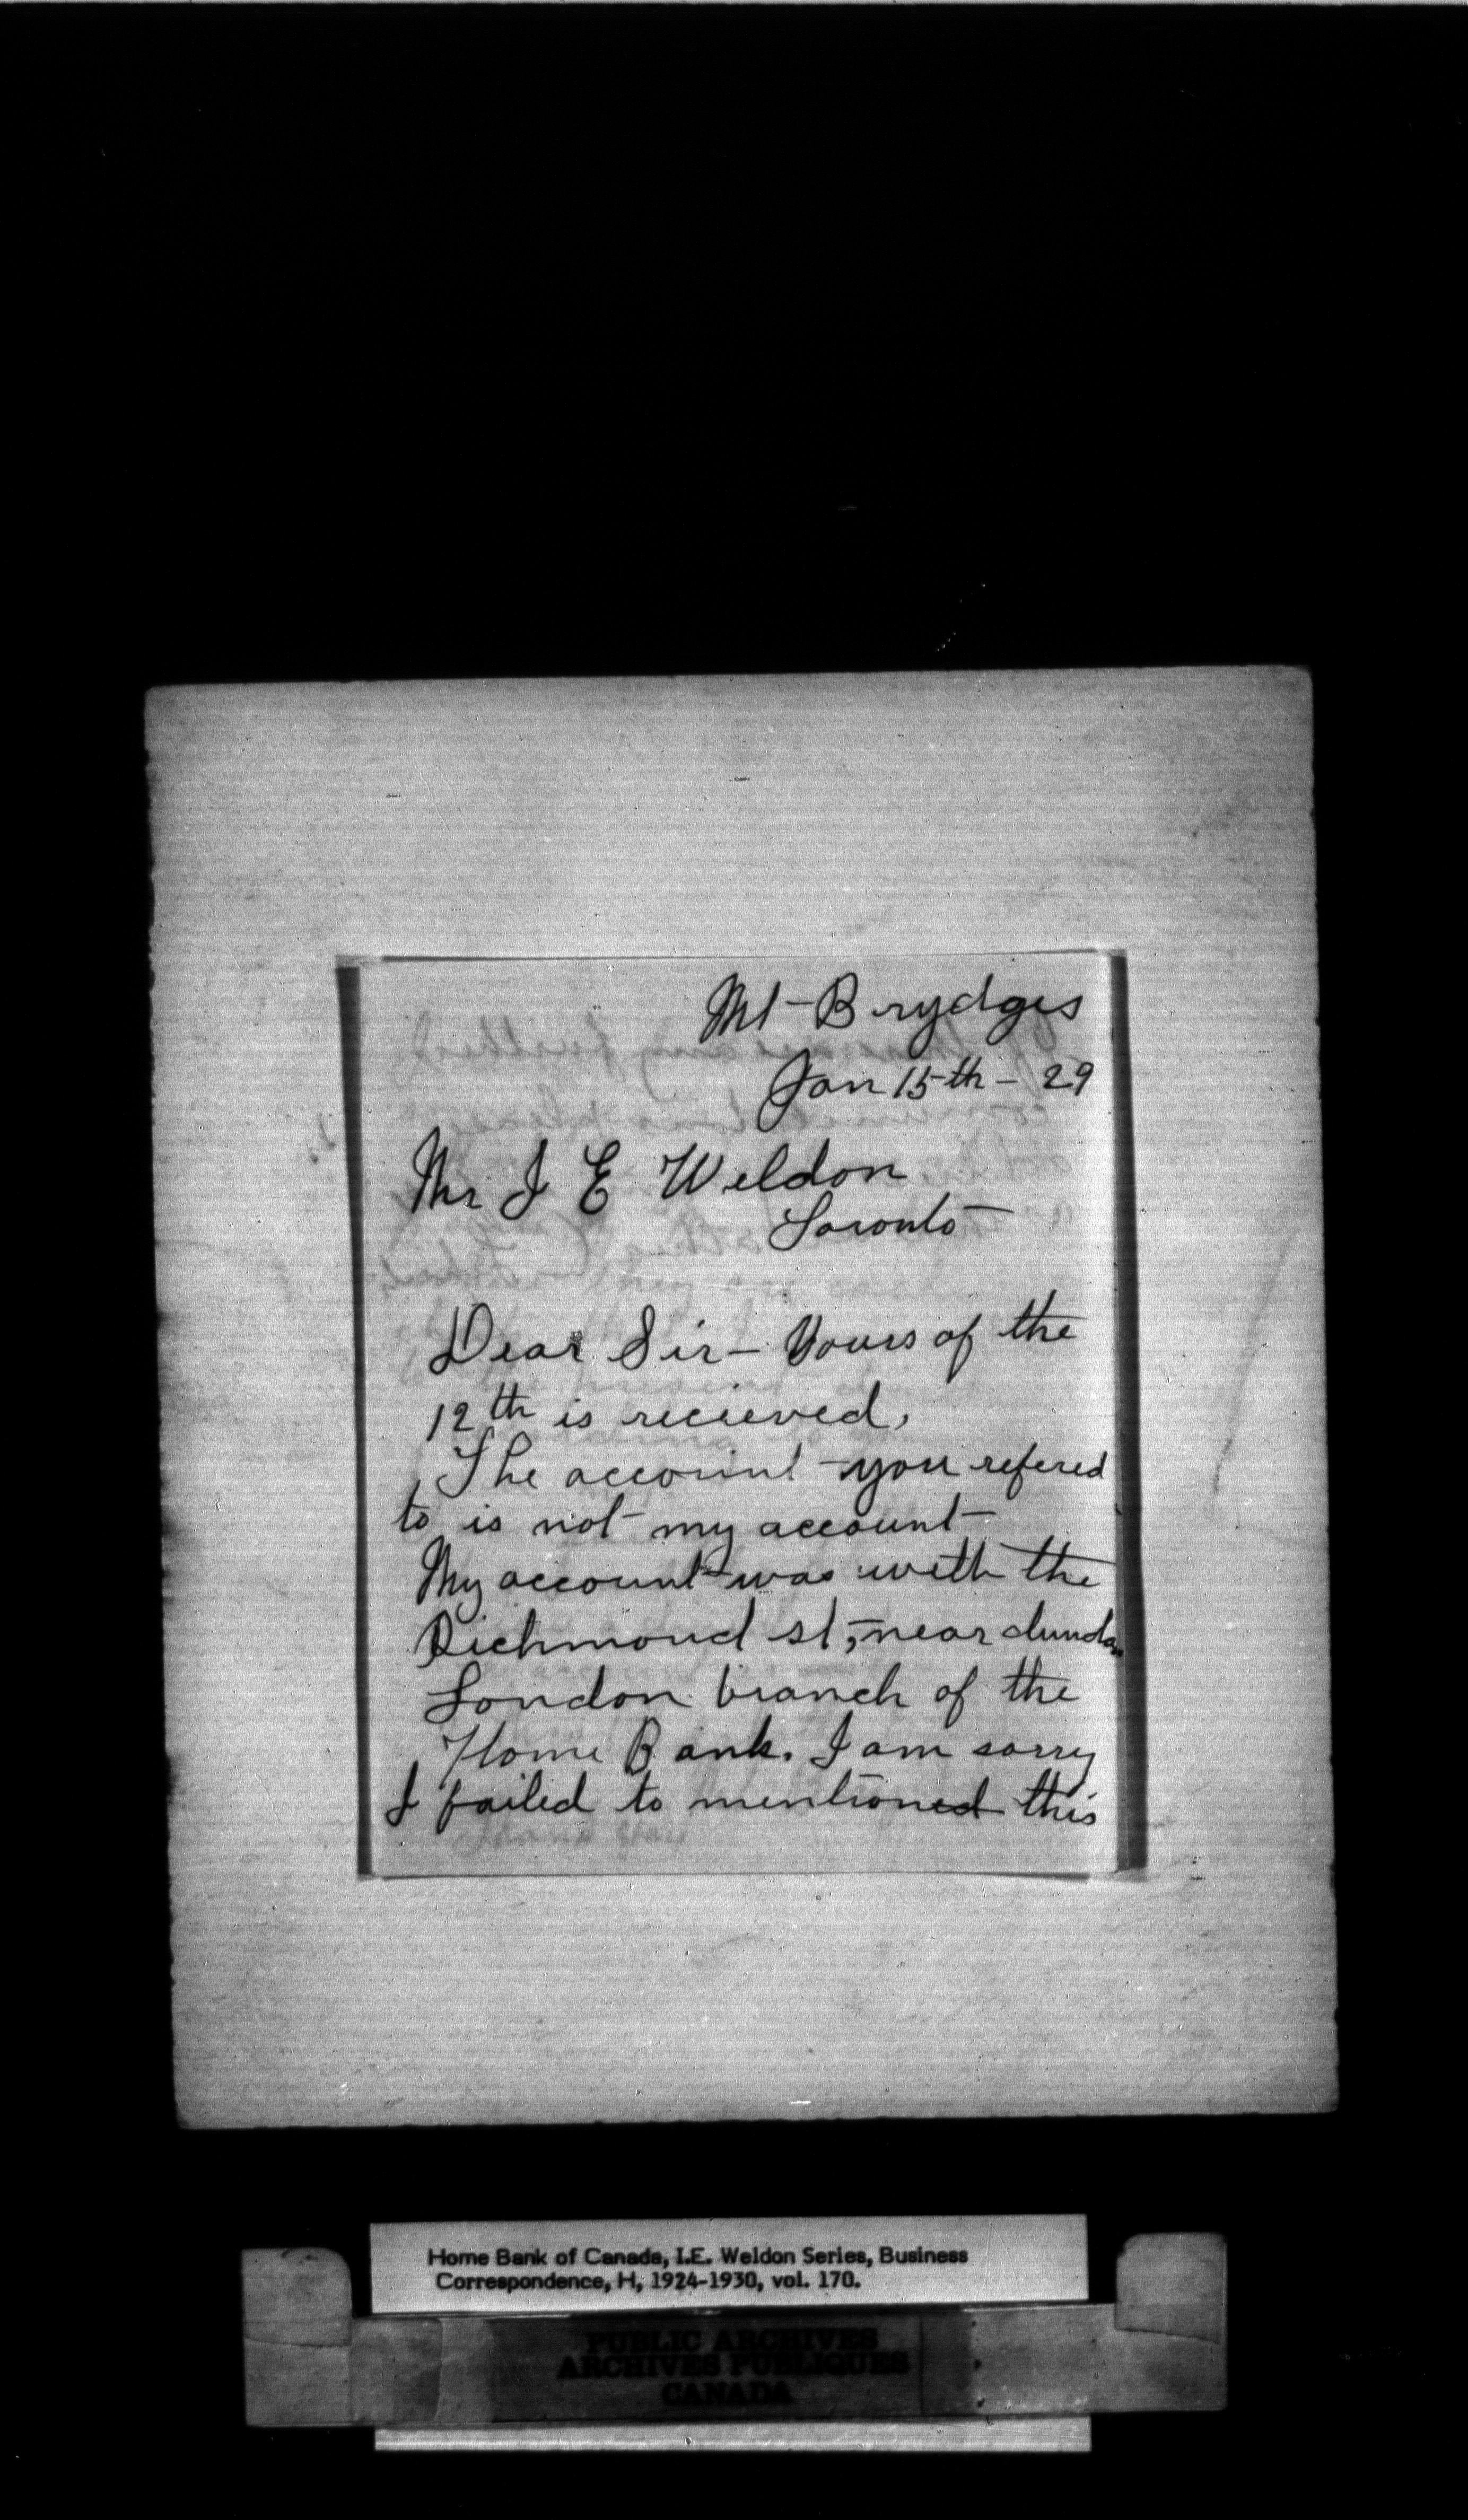 Mt-Brydges
Jan 15th - 29
Mr I E Weldon
Toronto
Dear Sir - Yours of the
12th is recieved,
The account you refered
to is not my account
My account was with the
Richmond st, near dundas
London branch of the
Home Bank. I am sorry
I failed to mentioned this
Thank You
Home Bank of Canada, I.E. Weldon Series, Business
Correspondence, H, 1924-1930, vol. 170.
PUBLIC ARCHIVES
ARCHIVES PUBLIQUES
CANADA